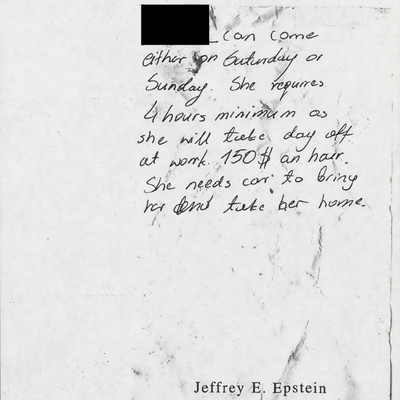 can come
either on Saturday or
Sunday. She requires
4 hours minimum as
she will take day off
at work. 150$ an hour.
She needs car to bring
her and take her home.
Jeffrey E. Epstein